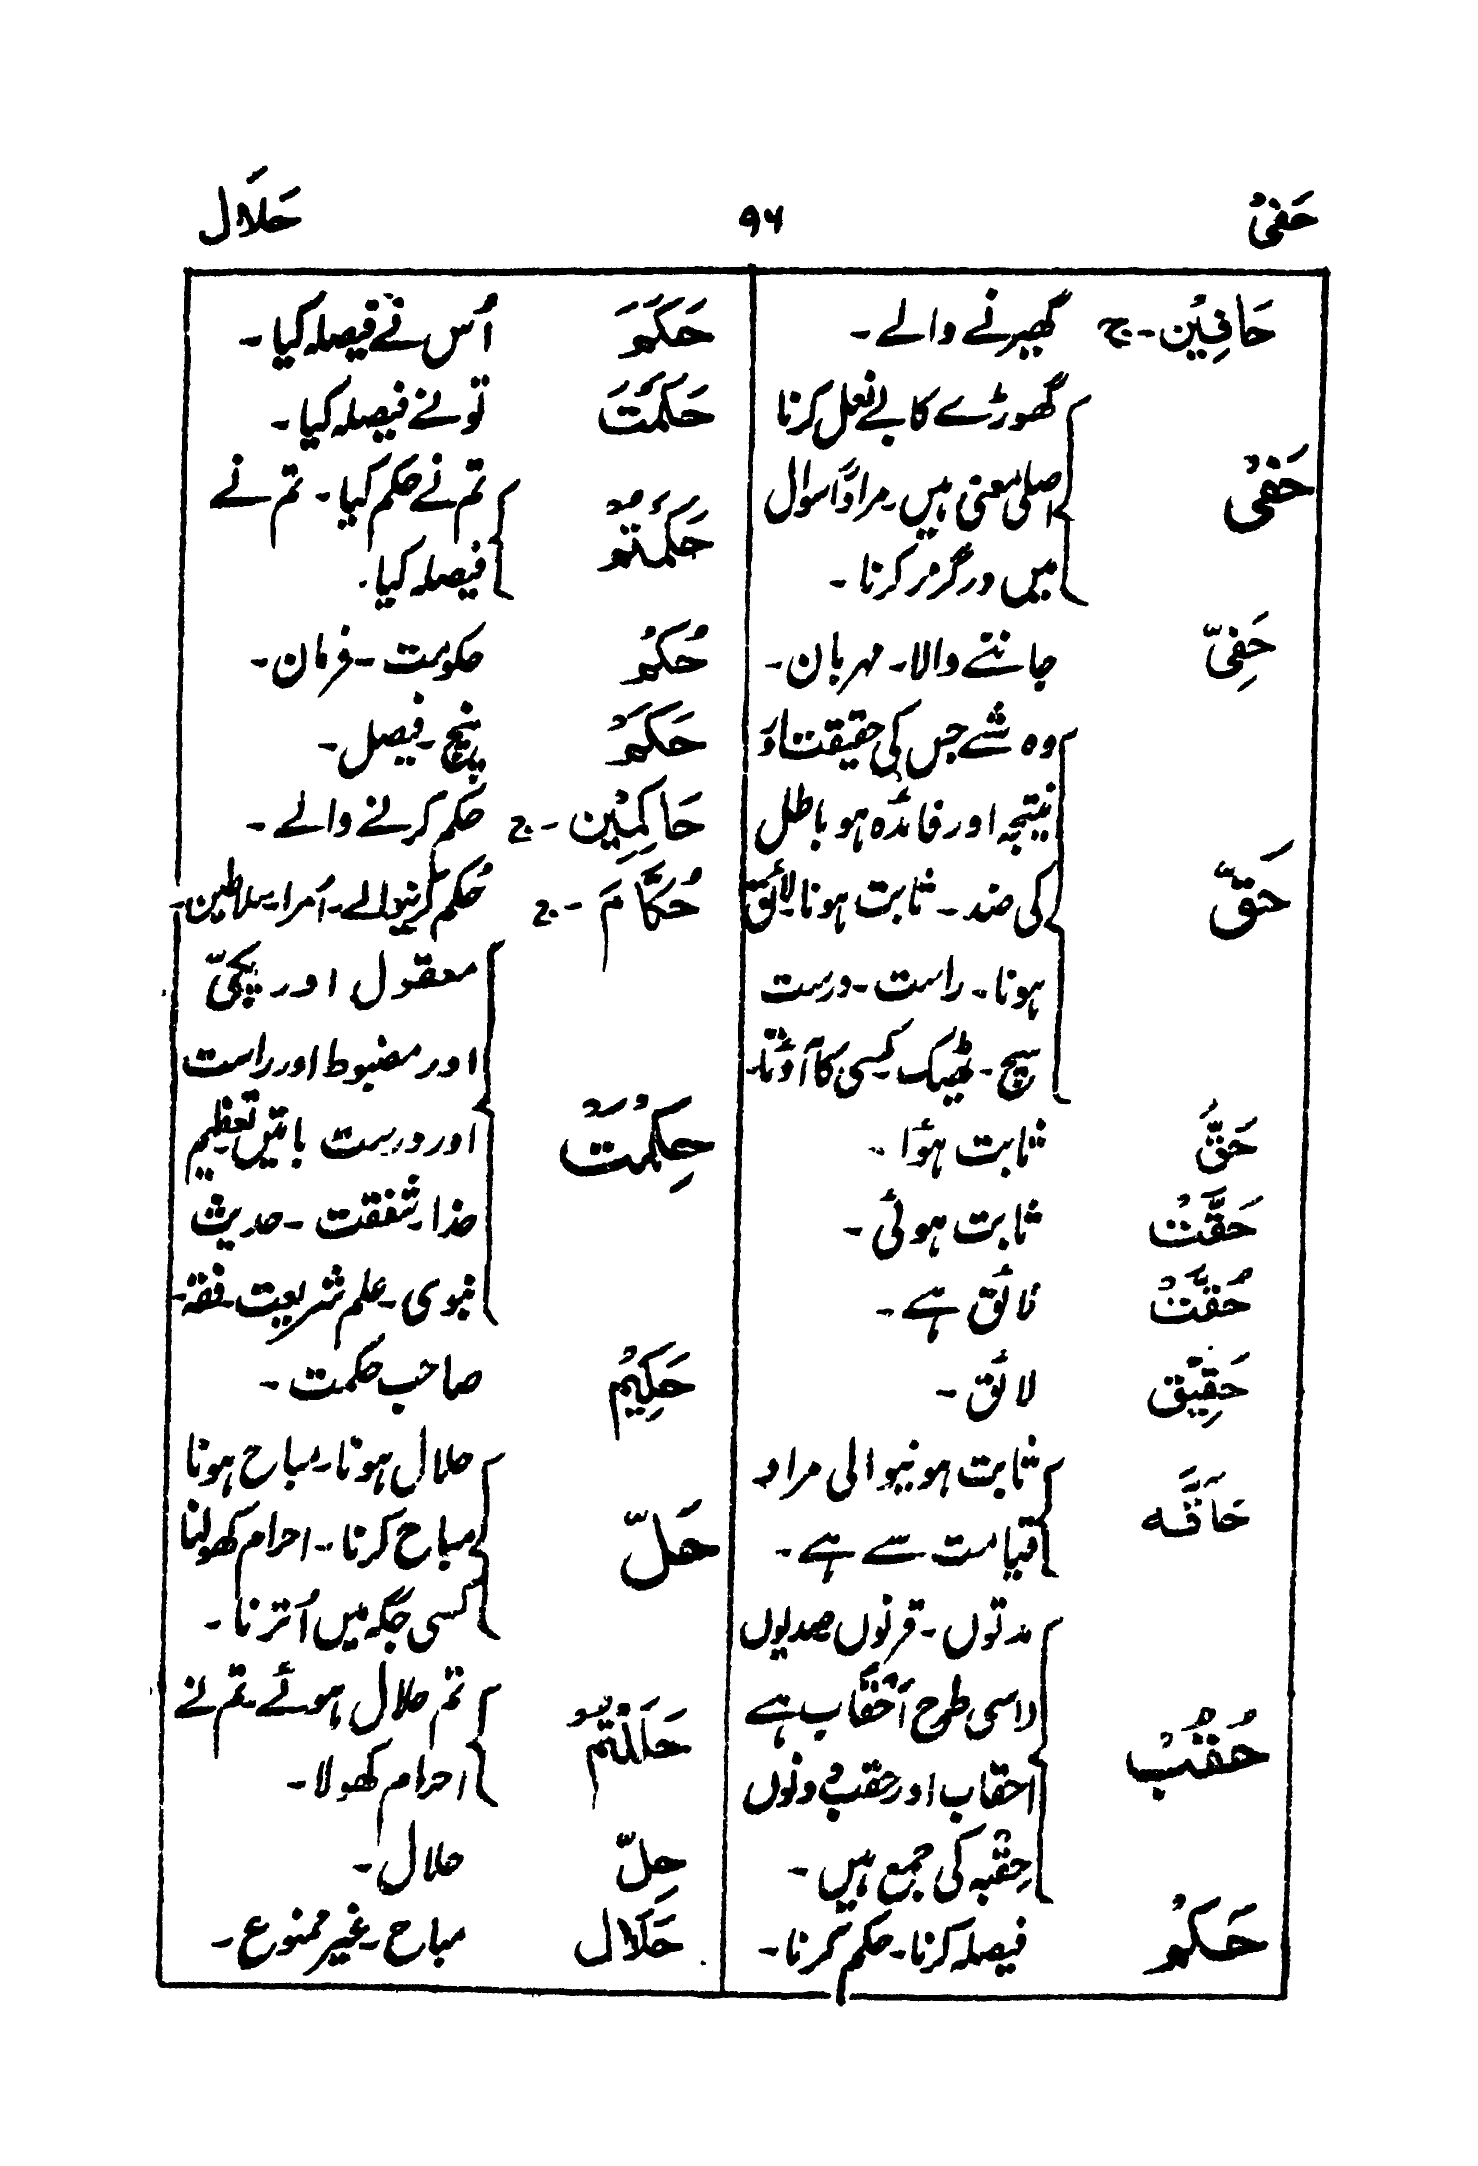 حَفْیٌ ۹۶ حَلَال
حَافِّیْن۔ ج گھیرنے والے۔
گھوڑے کا بے نعل کرنا
حَفْیٌ اصلی معنی ہیں۔ مراداً سوال
میں درگزر کرنا۔
حَفِیّ جاننے والا۔ مہربان۔
وہ شے جس کی حقیقت اَوْر
نیتجہ اور فائدہ ہو باطل
حَقّ کی ضد۔ ثابت ہونا۔ لائق
ہونا۔ راست۔ درست
سچ۔ ٹھیک۔ کسی کا آوُتا۔
حَقَّ ثابت ہؤا۔
حَقَّتْ ثابت ہوئی۔
حُقَّتْ لائق ہے۔
حَقِیْق لائق۔
حَاقَّہ ثابت ہونیوالی مراد
قیامت سے ہے۔
مدتوں۔ قرنوں صدیوں
حُقُبٌ (اسی طرح اَحْقَاب ہے
احقاب اور حقب دونوں
حِقْبہ کی جمع ہیں۔
حَکْمٌ فیصلہ کرنا۔ حکم کرنا۔
حَکَمَ اُس نے فیصلہ کیا۔
حَکَمْتَ تو نے فیصلہ کیا۔
حَکَمْتُمْ تم نے حکم کیا۔ تم نے
فیصلہ کیا۔
حُکْمٌ حکومت۔ فرمان۔
حَکَمٌ پنچ۔ فیصل۔
حَاکِمِیْن۔ ج حکم کرنے والے۔
حُکَّام۔ ج حُکم کرنیوالے۔ اُمرا۔ سلاطین۔
معقول اور پکّی
اور مضبوط اور راست
حِکْمَتٌ اور درست باتیں تعظیم
خدا۔ شفقت۔ حدیث
نبوی۔ علم شریعت۔ فقہ۔
حَکِیْمٌ صاحب حکمت۔
حلال ہونا۔ مباح ہونا
حَلّ مباح کرنا۔ احرام کھولنا
کسی جگہ میں اُترنا۔
حَلَلْتُمْ تم حلال ہوئے۔ تم نے
احرام کھولا۔
حِلّ حلال۔
حَلَال مباح۔ غیر ممنوع۔